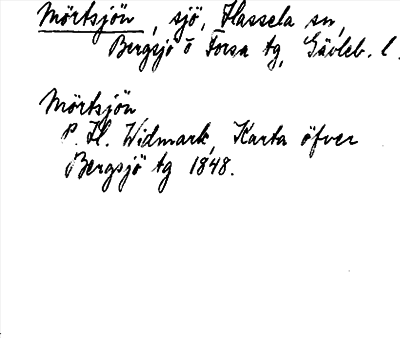 Mörtsjön, sjö, Hassela sn,
Bergsjö o Forsa tg, Gävleb. l.
Mörtsjön
P. H. Widmark, Karta öfver
Bergsjö tg 1848.